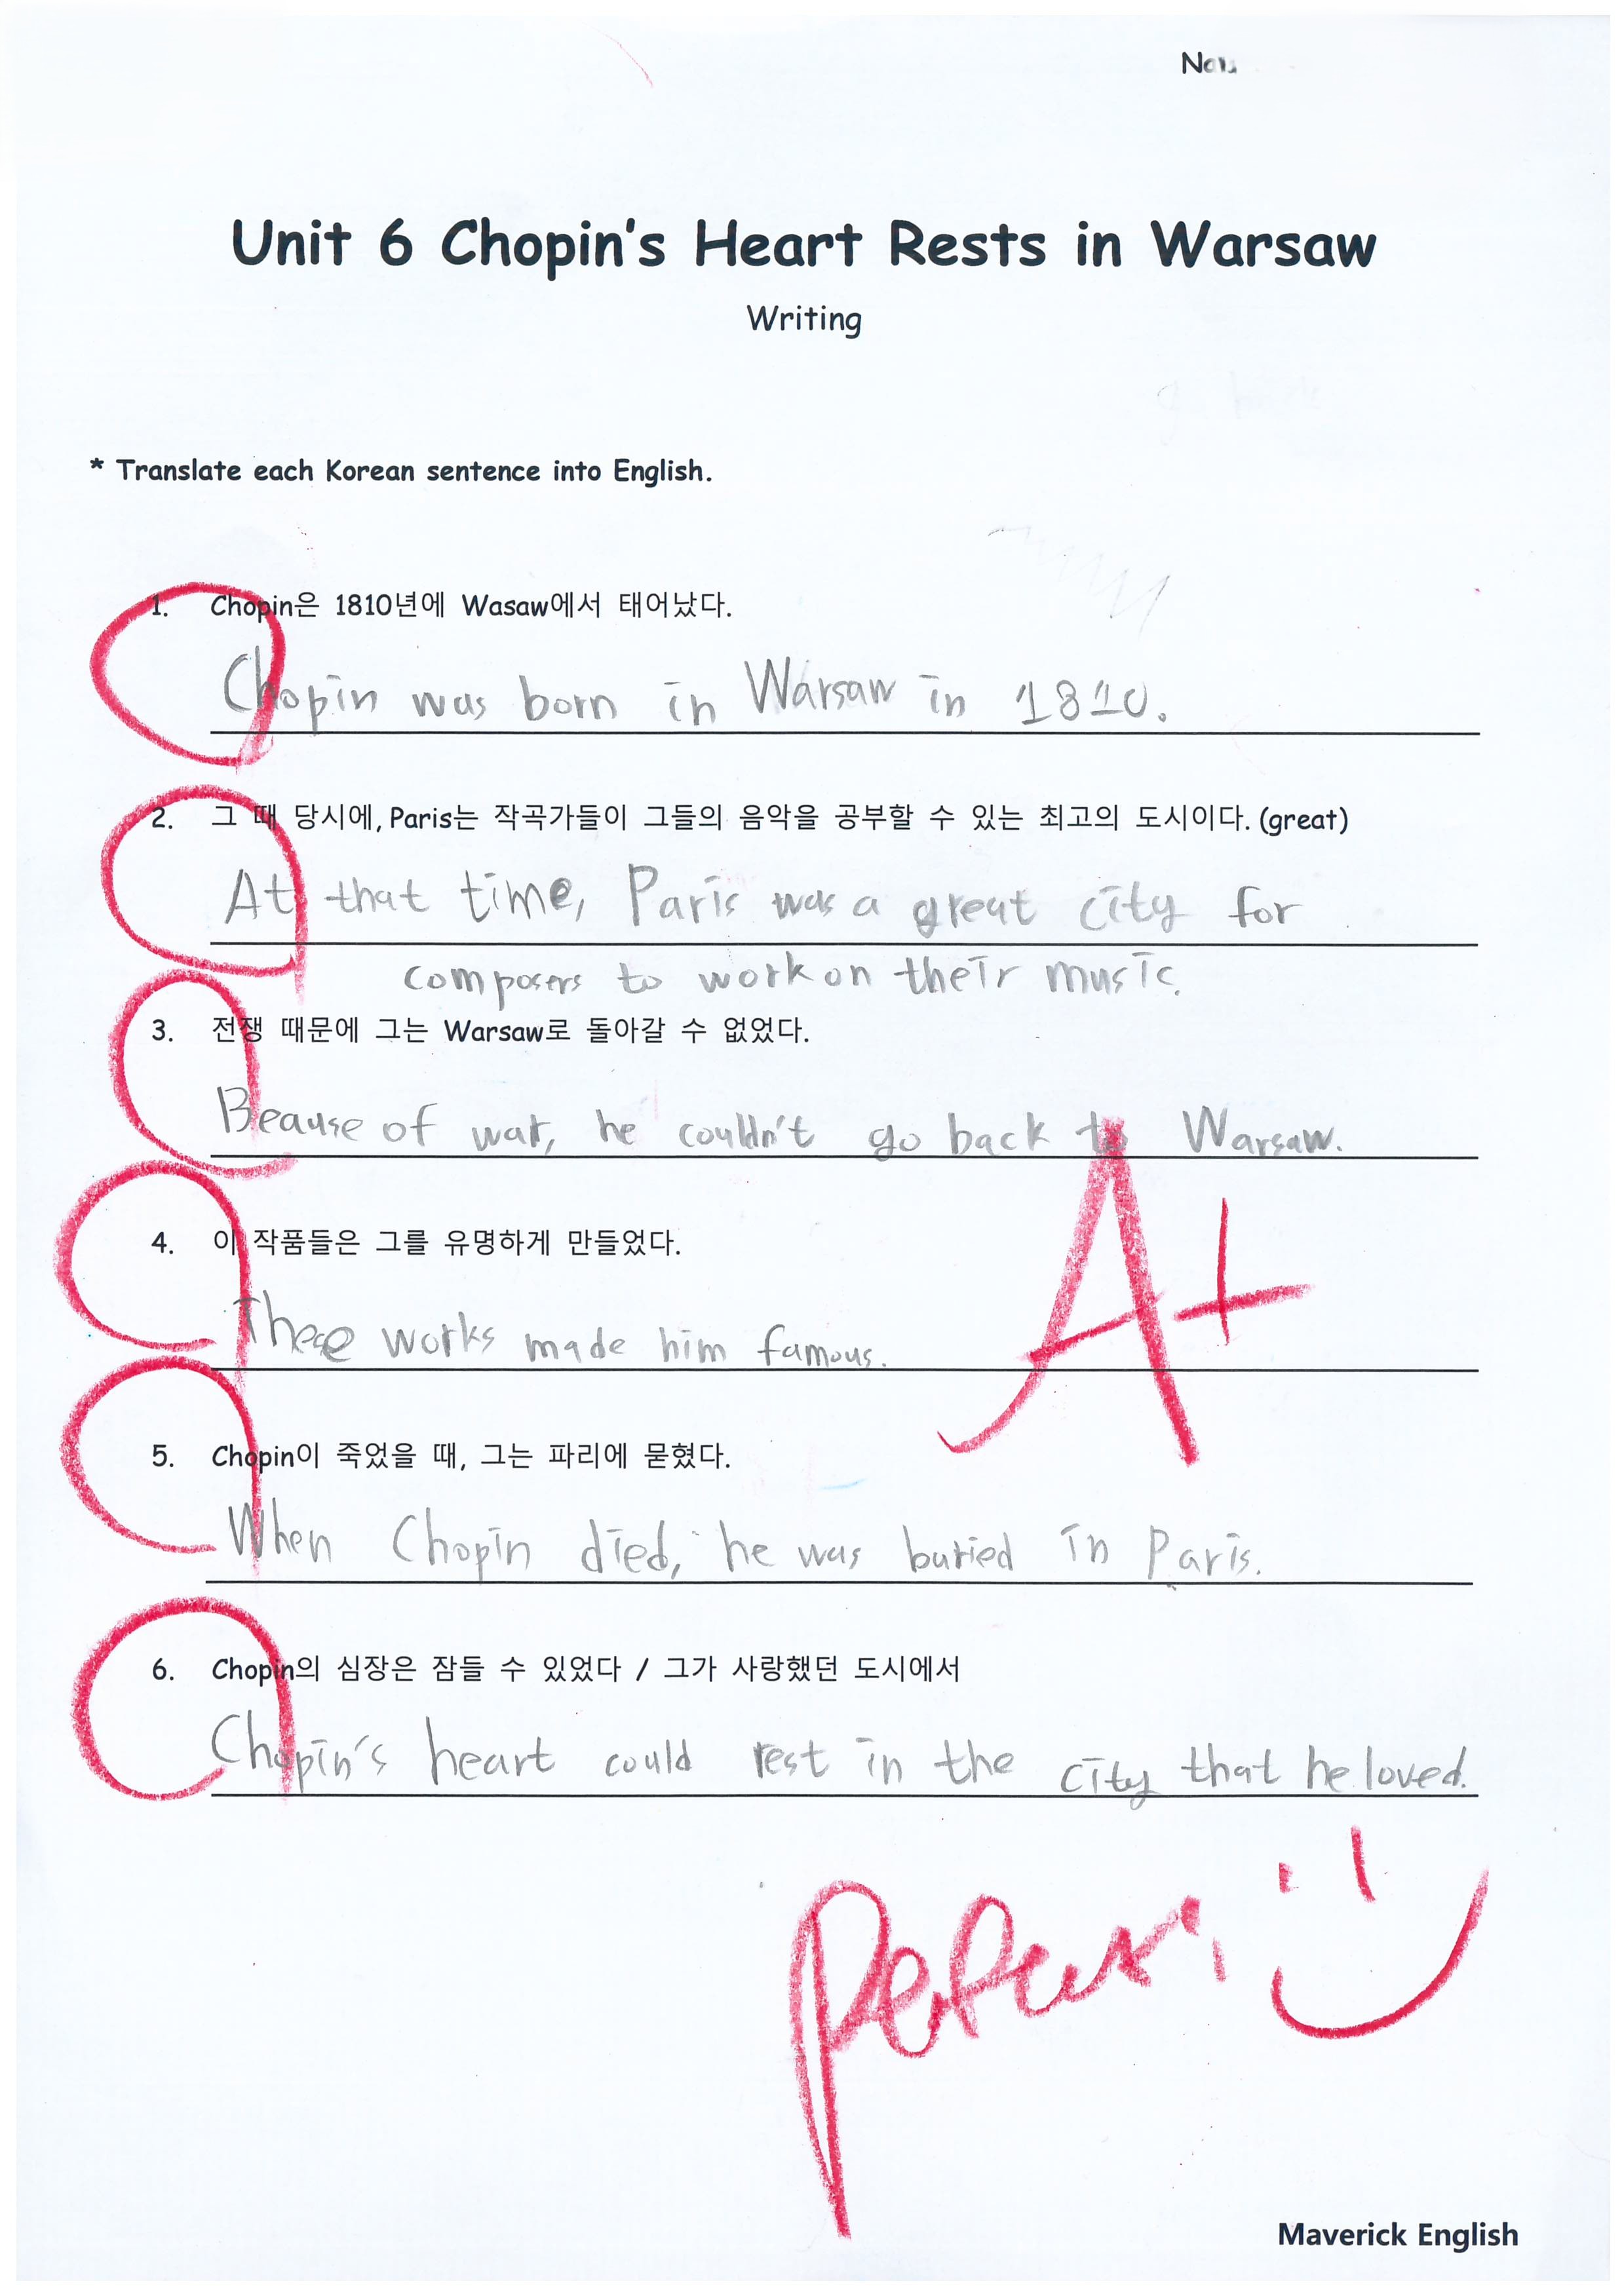 Unit 6 Chopin's Heart Rests in Warsaw
Writing
* Translate each Korean sentence into English.
1. Chopin은 1810년에 Wasaw에서 태어났다.
Chopin was born in Warsaw in 1810.
2. 그 때 당시에, Paris는 작곡가들이 그들의 음악을 공부할 수 있는 최고의 도시이다. (great)
At that time, Paris was a great city for
composers to work on their music.
3. 전쟁 때문에 그는 Warsaw로 돌아갈 수 없었다.
Beause of war, he couldn't go back to Warsaw.
4. 이 작품들은 그를 유명하게 만들었다.
These works made him famous.
A+
5. Chopin이 죽었을 때, 그는 파리에 묻혔다.
When Chopin died, he was buried in Paris.
6. Chopin의 심장은 잠들 수 있었다 / 그가 사랑했던 도시에서
Chopin's heart could rest in the city that he loved.
Maverick English